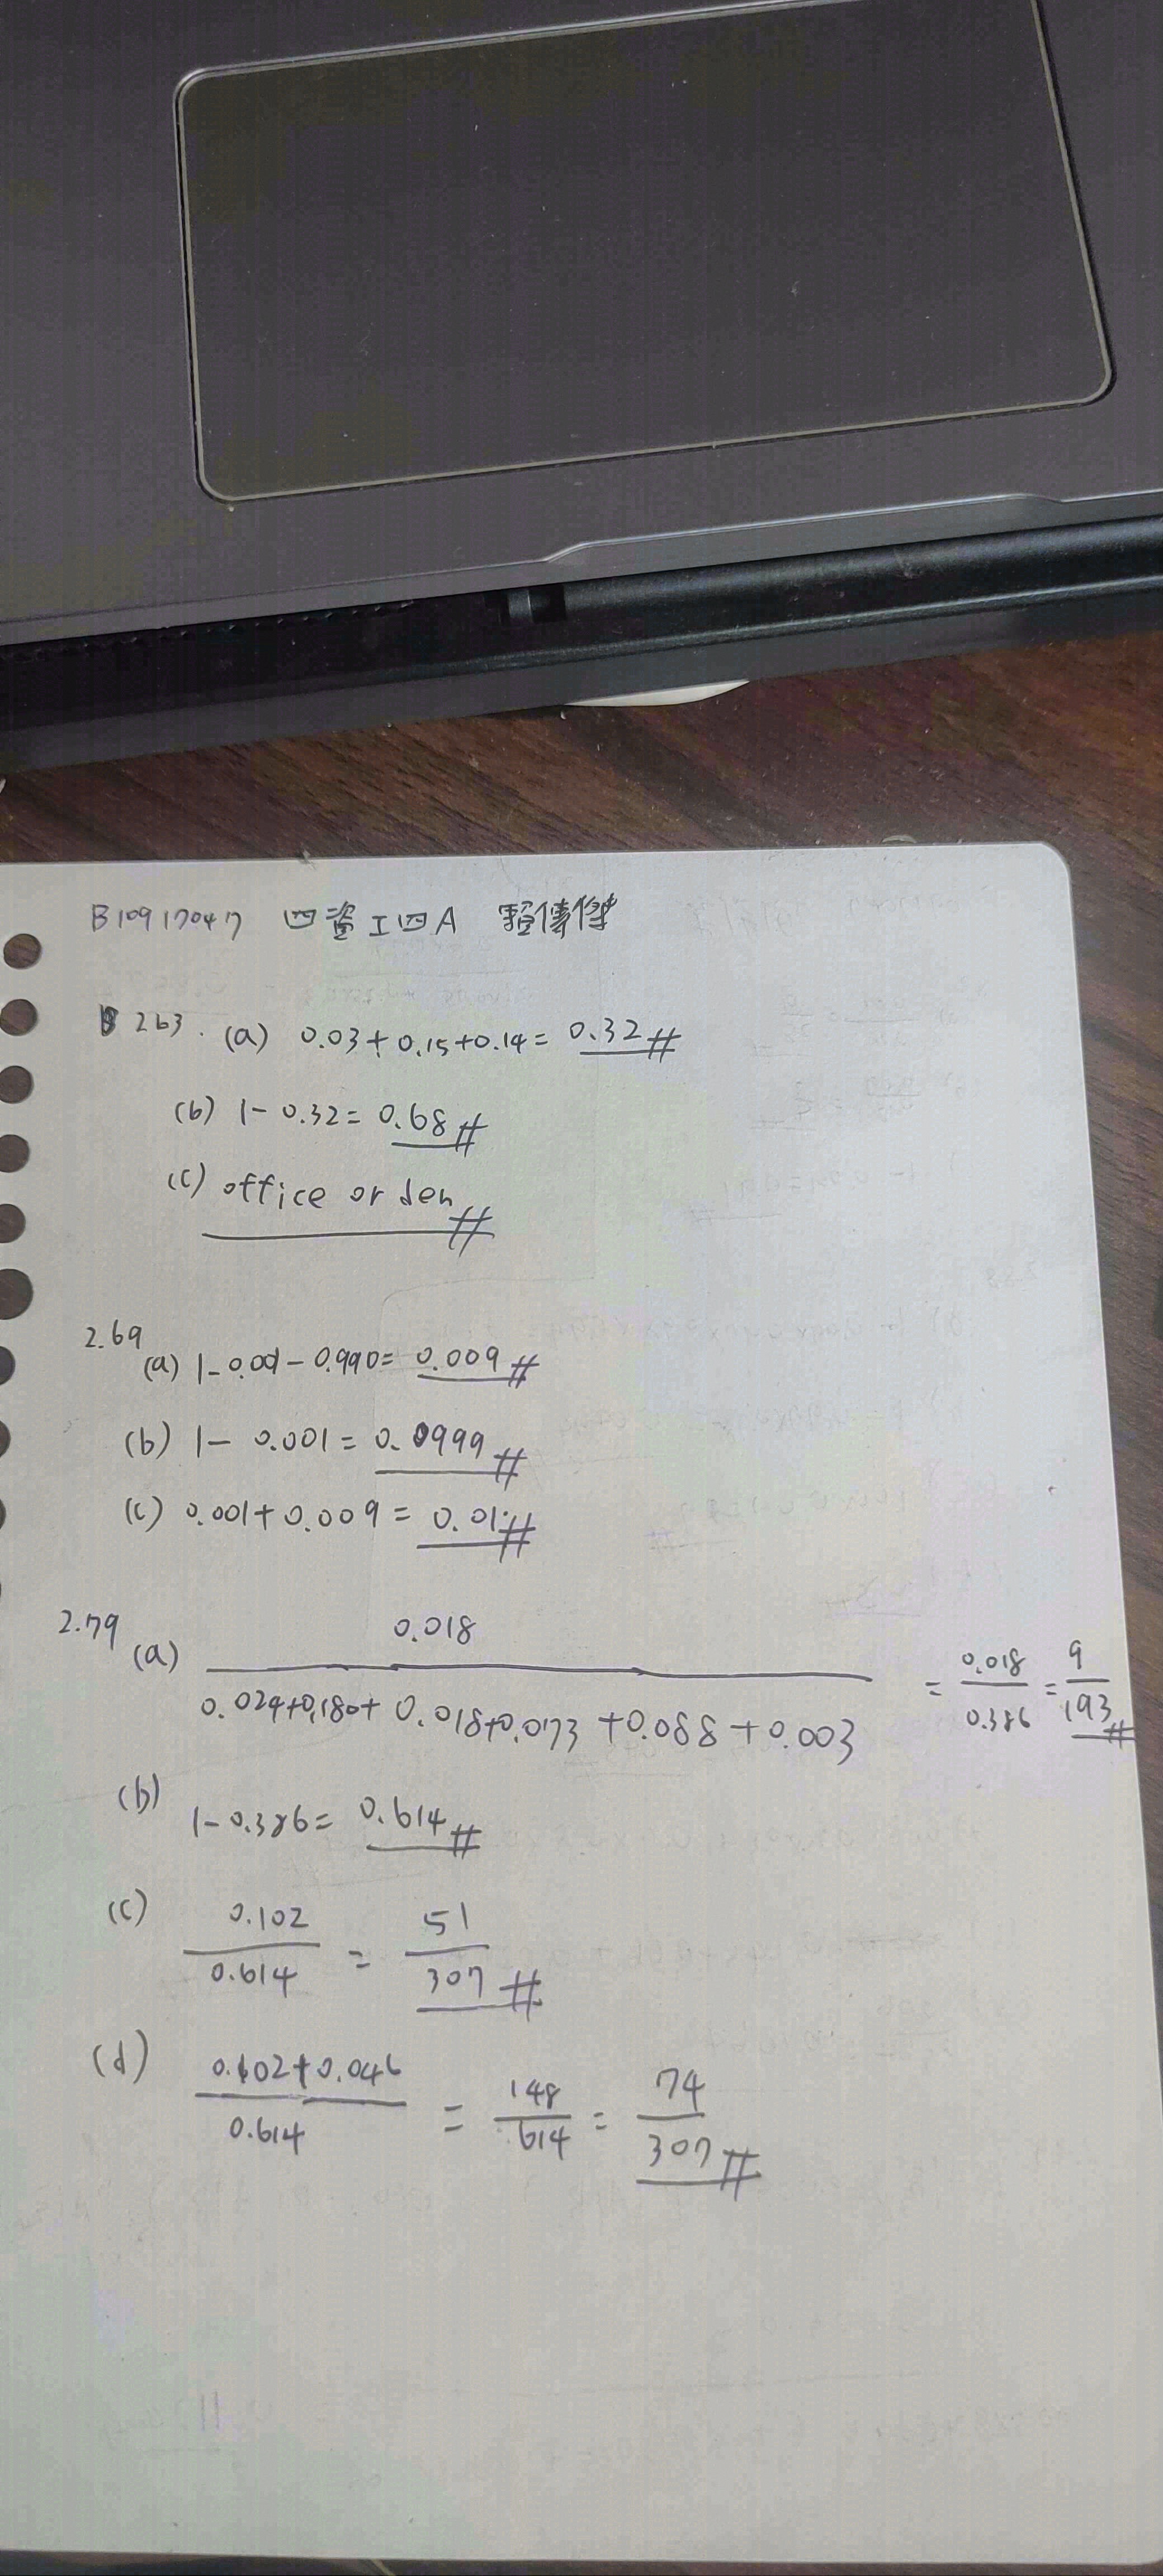 B10917047 四資工四A 賴傳傑
263. (a) 0.03+0.15+0.14= 0.32#
(b) 1-0.32= 0.68#
(c) office or den#
2.69
(a) 1-0.001-0.990= 0.009#
(b) 1- 0.001= 0.0999#
(c) 0.001+0.009= 0.01#
2.79
(a) 0.018 / 0.024+0.180+0.018+0.073+0.088+0.003 = 0.018/0.386 = 9/193#
(b) 1-0.386= 0.614#
(c) 0.102/0.614 = 51/307#
(d) 0.102+0.046/0.614 = 148/614 = 74/307#